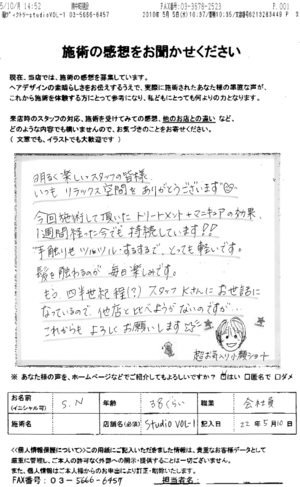 5/10/月 14:52
FAX番号:03-3678-2523
P.001
施術の感想をお聞かせください
現在、当店では、施術の感想を募集しています。
ヘアデザインの素晴らしさをお伝えするうえで、実際に施術されたあなた様の率直な声が、
これから施術を体験する方にとって参考になり、私どもにとっても何よりの力となります。
来店時のスタッフの対応、施術を受けてみての感想、他のお店との違い など、
どのような内容でも構いませんので、お気づきのことをお寄せください。
( 文章でも、イラストでも大歓迎です )
明るく楽しいスタッフの皆様
いつも リラックス空間を ありがとうございます
今回施術して頂いた トリートメント+マニキュアの効果、
1週間経った今でも 持続しています!!
手触りも ツルツル・するするで、とっても軽いです。
髪を触れるのが 毎日楽しみです。
もう 四半世紀程(?) スタッフ Kさんにお世話に
なっているので、他店と比べようがないのですが…
これからも よろしく お願いします
超お気入り小顔ショート
※ あなた様の声を、ホームページなどでご紹介してもよろしいですか? はい □匿名で □ダメ
お名前 (イニシャル可) S.N 年齢 38くらい 職業 会社員
施術名 店舗名(必須) Studio VOL-1 記入日 22年5月10日
<<個人情報保護について>>この用紙にご記入いただきました情報は、貴重なお客様データとして
厳重に管理し、ご本人の許可なく外部への開示・提供することは一切ございません。
また、個人情報はご本人様からのお申出により訂正・削除いたします。
FAX番号: 03-5666-6457 担当者名: